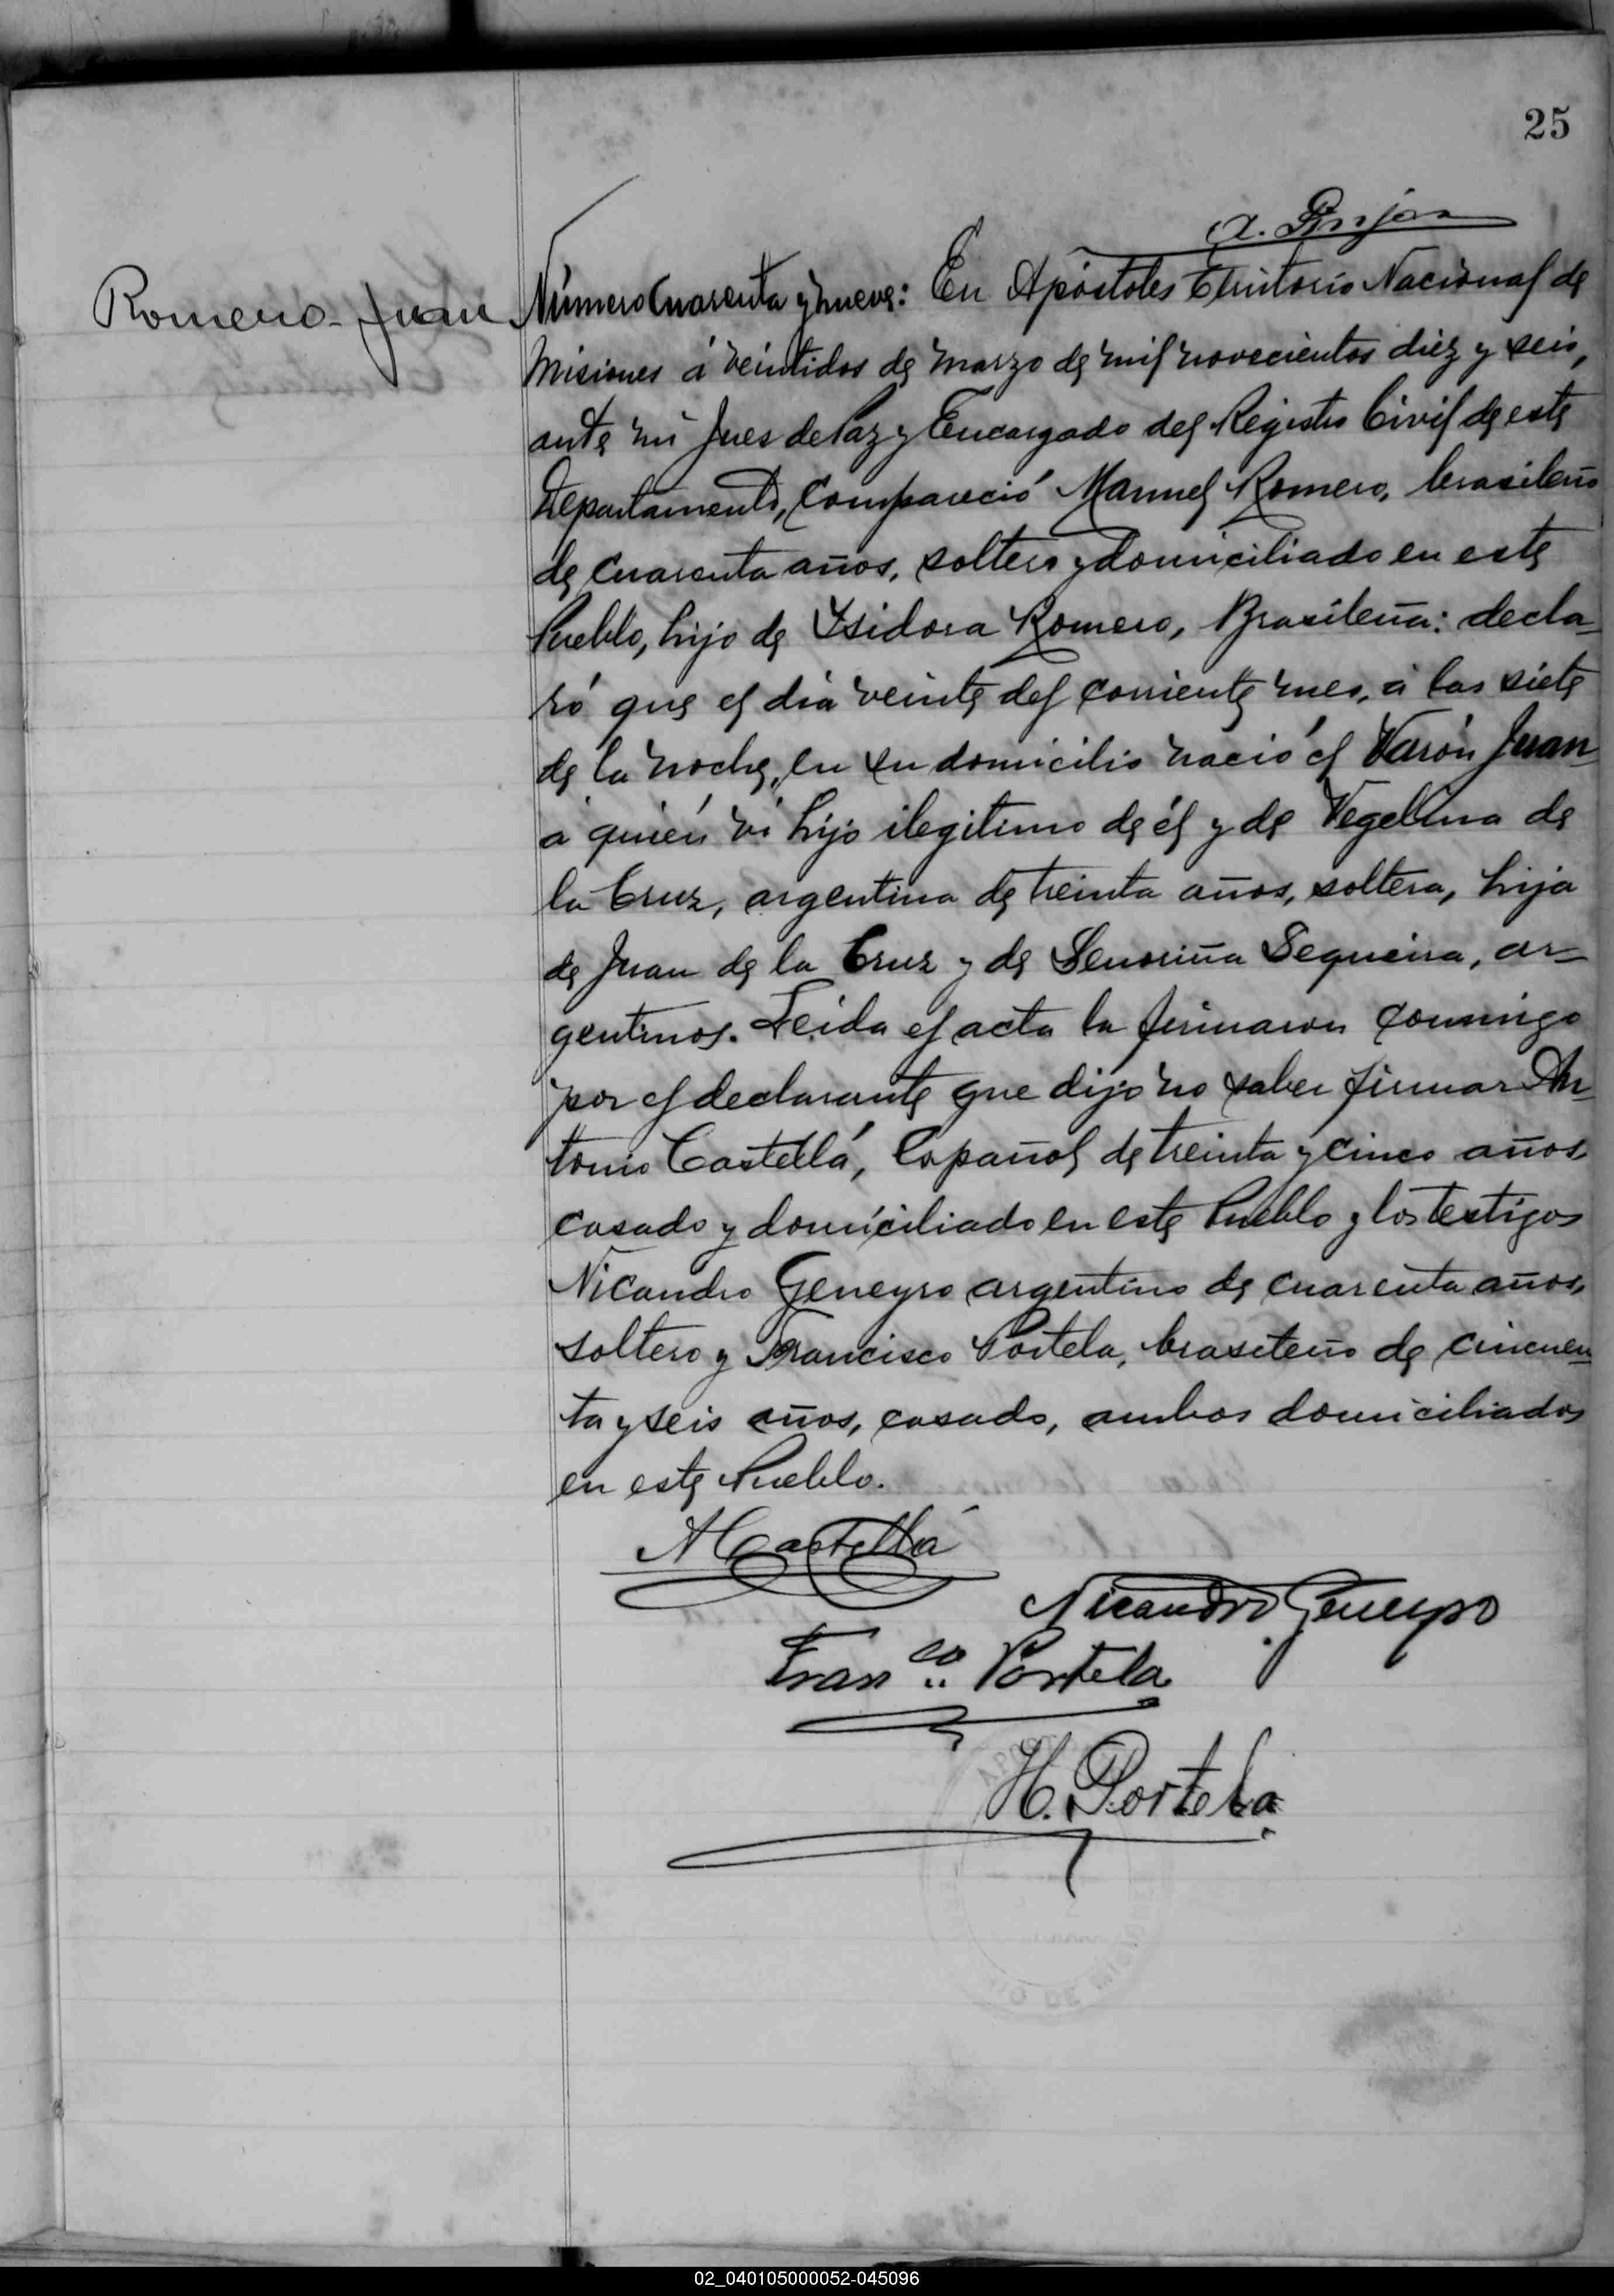 25
Romero - Juan
Número Cuarenta y nueve: En Apóstoles Territorio Nacional de
Misiones á veintidos de marzo de mil novecientos diez y seis,
ante mi Jues de Paz y Encargado del Registro Civil de este
Departamento, Compareció Manuel Romero, brasileño
de cuarenta años, soltero y domiciliado en este
Pueblo, hijo de Ysidora Romero, Brasileña: decla-
ró que el día veinte del corriente mes, á las siete
de la noche, en su domicilio nació el Varón Juan
á quién ví hijo ilegitimo de él y de Vegelina de
la Cruz, argentina de treinta años, soltera, hija
de Juan de la Cruz y de Senoriña Sequeira, ar-
gentinos. Leida el acta la firmaron conmigo
por el declarante que dijo no saber firmar An-
tonio Castellá, Español de treinta y cinco años
casado y domiciliado en este Pueblo y los testigos
Nicandro Geneyro argentino de cuarenta años,
soltero y Francisco Portela, brasileño de cincuen-
ta y seis años, casado, ambos domiciliados
en este Pueblo.
A Castellá
Nicandro Geneyro
Fran.co Portela
H. Portela
02_040105000052-045096